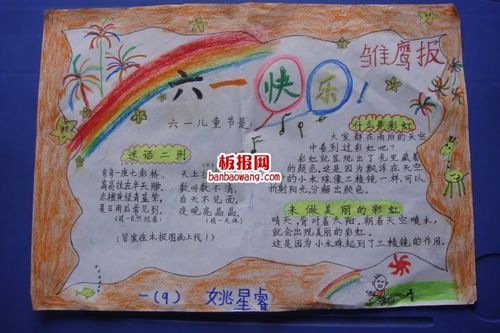 雏鹰报
六一快乐!
六一儿童节是
谜语二则
弯弯一座七彩桥,
高高挂在半天腰,
赤橙黄绿青蓝紫,
夏日雨后常见到。
天上
数呀数不清,
白天不见面,
夜晚亮晶晶。
(答案在本报图画上找!)
什么是彩虹
大家都在雨后的天空
中看到过彩虹吧?
彩虹就显现出了光里藏着
的颜色。这是因为飘浮在天空
中的小水珠像三棱镜一样,可以
折射阳光,分解出颜色。
来做美丽的彩虹
晴天,背对着太阳,朝着天空喷水,
就会出现美丽的彩虹。
这是因为小水珠起到了三棱镜的作用。
一(9) 姚星睿
板报网
banbaowang.com